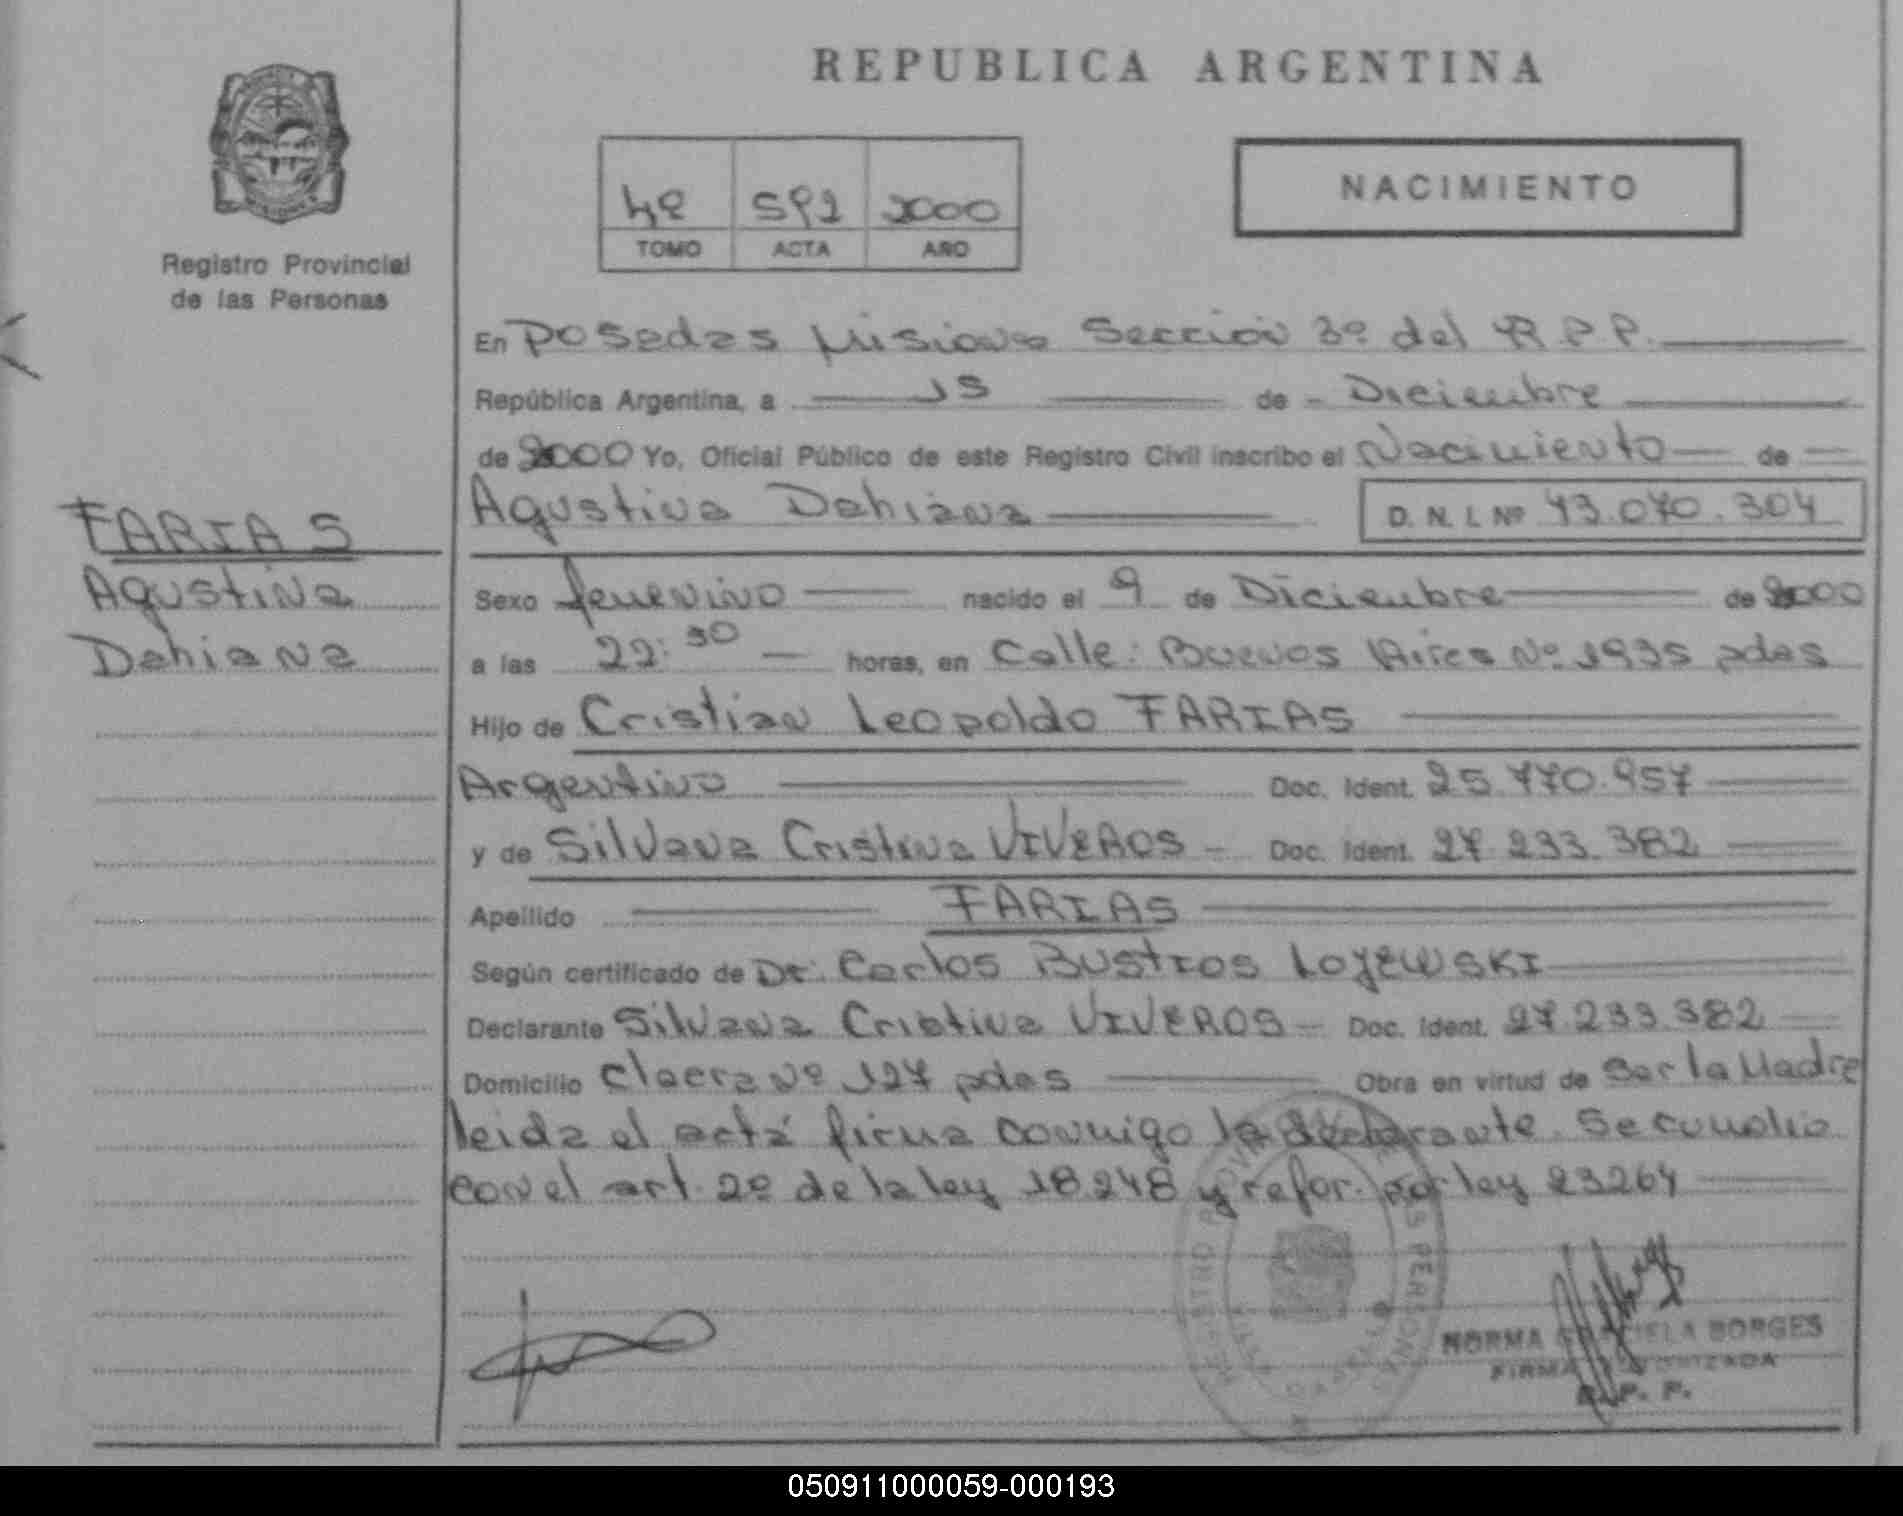 REPUBLICA ARGENTINA
NACIMIENTO
2000
TOMO ACTA AÑO
Registro Provincial
de las Personas
En Posadas Misiones Sección 3º del R.P.P.
República Argentina, a 15 de Diciembre
de 2000 Yo, Oficial Público de este Registro Civil inscribo el Nacimiento de
Agustina Dahiana D. N. I. Nº 43.070.304
FARIAS
Agustina
Dahiana
Sexo femenino nacido el 9 de Diciembre de 2000
a las 22:30 horas, en Calle: Buenos Aires Nº 1935 pdas
Hijo de Cristian Leopoldo FARIAS
Argentino Doc. Ident. 25.770.957
y de Silvana Cristina VIVEROS Doc. Ident. 27.233.382
Apellido FARIAS
Según certificado de Dr. Carlos BUSTIOS LOYEWSKI
Declarante Silvana Cristina VIVEROS Doc. Ident. 27.233.382
Domicilio Nº 127 pdas Obra en virtud de Ser la Madre
leida el acta firma conmigo la declarante. Se cumplio
con el art. 2º de la ley 18.248 y refor. por ley 23264
NORMA GRACIELA BORGES
FIRMA AUTORIZADA
R. P. P.
050911000059-000193